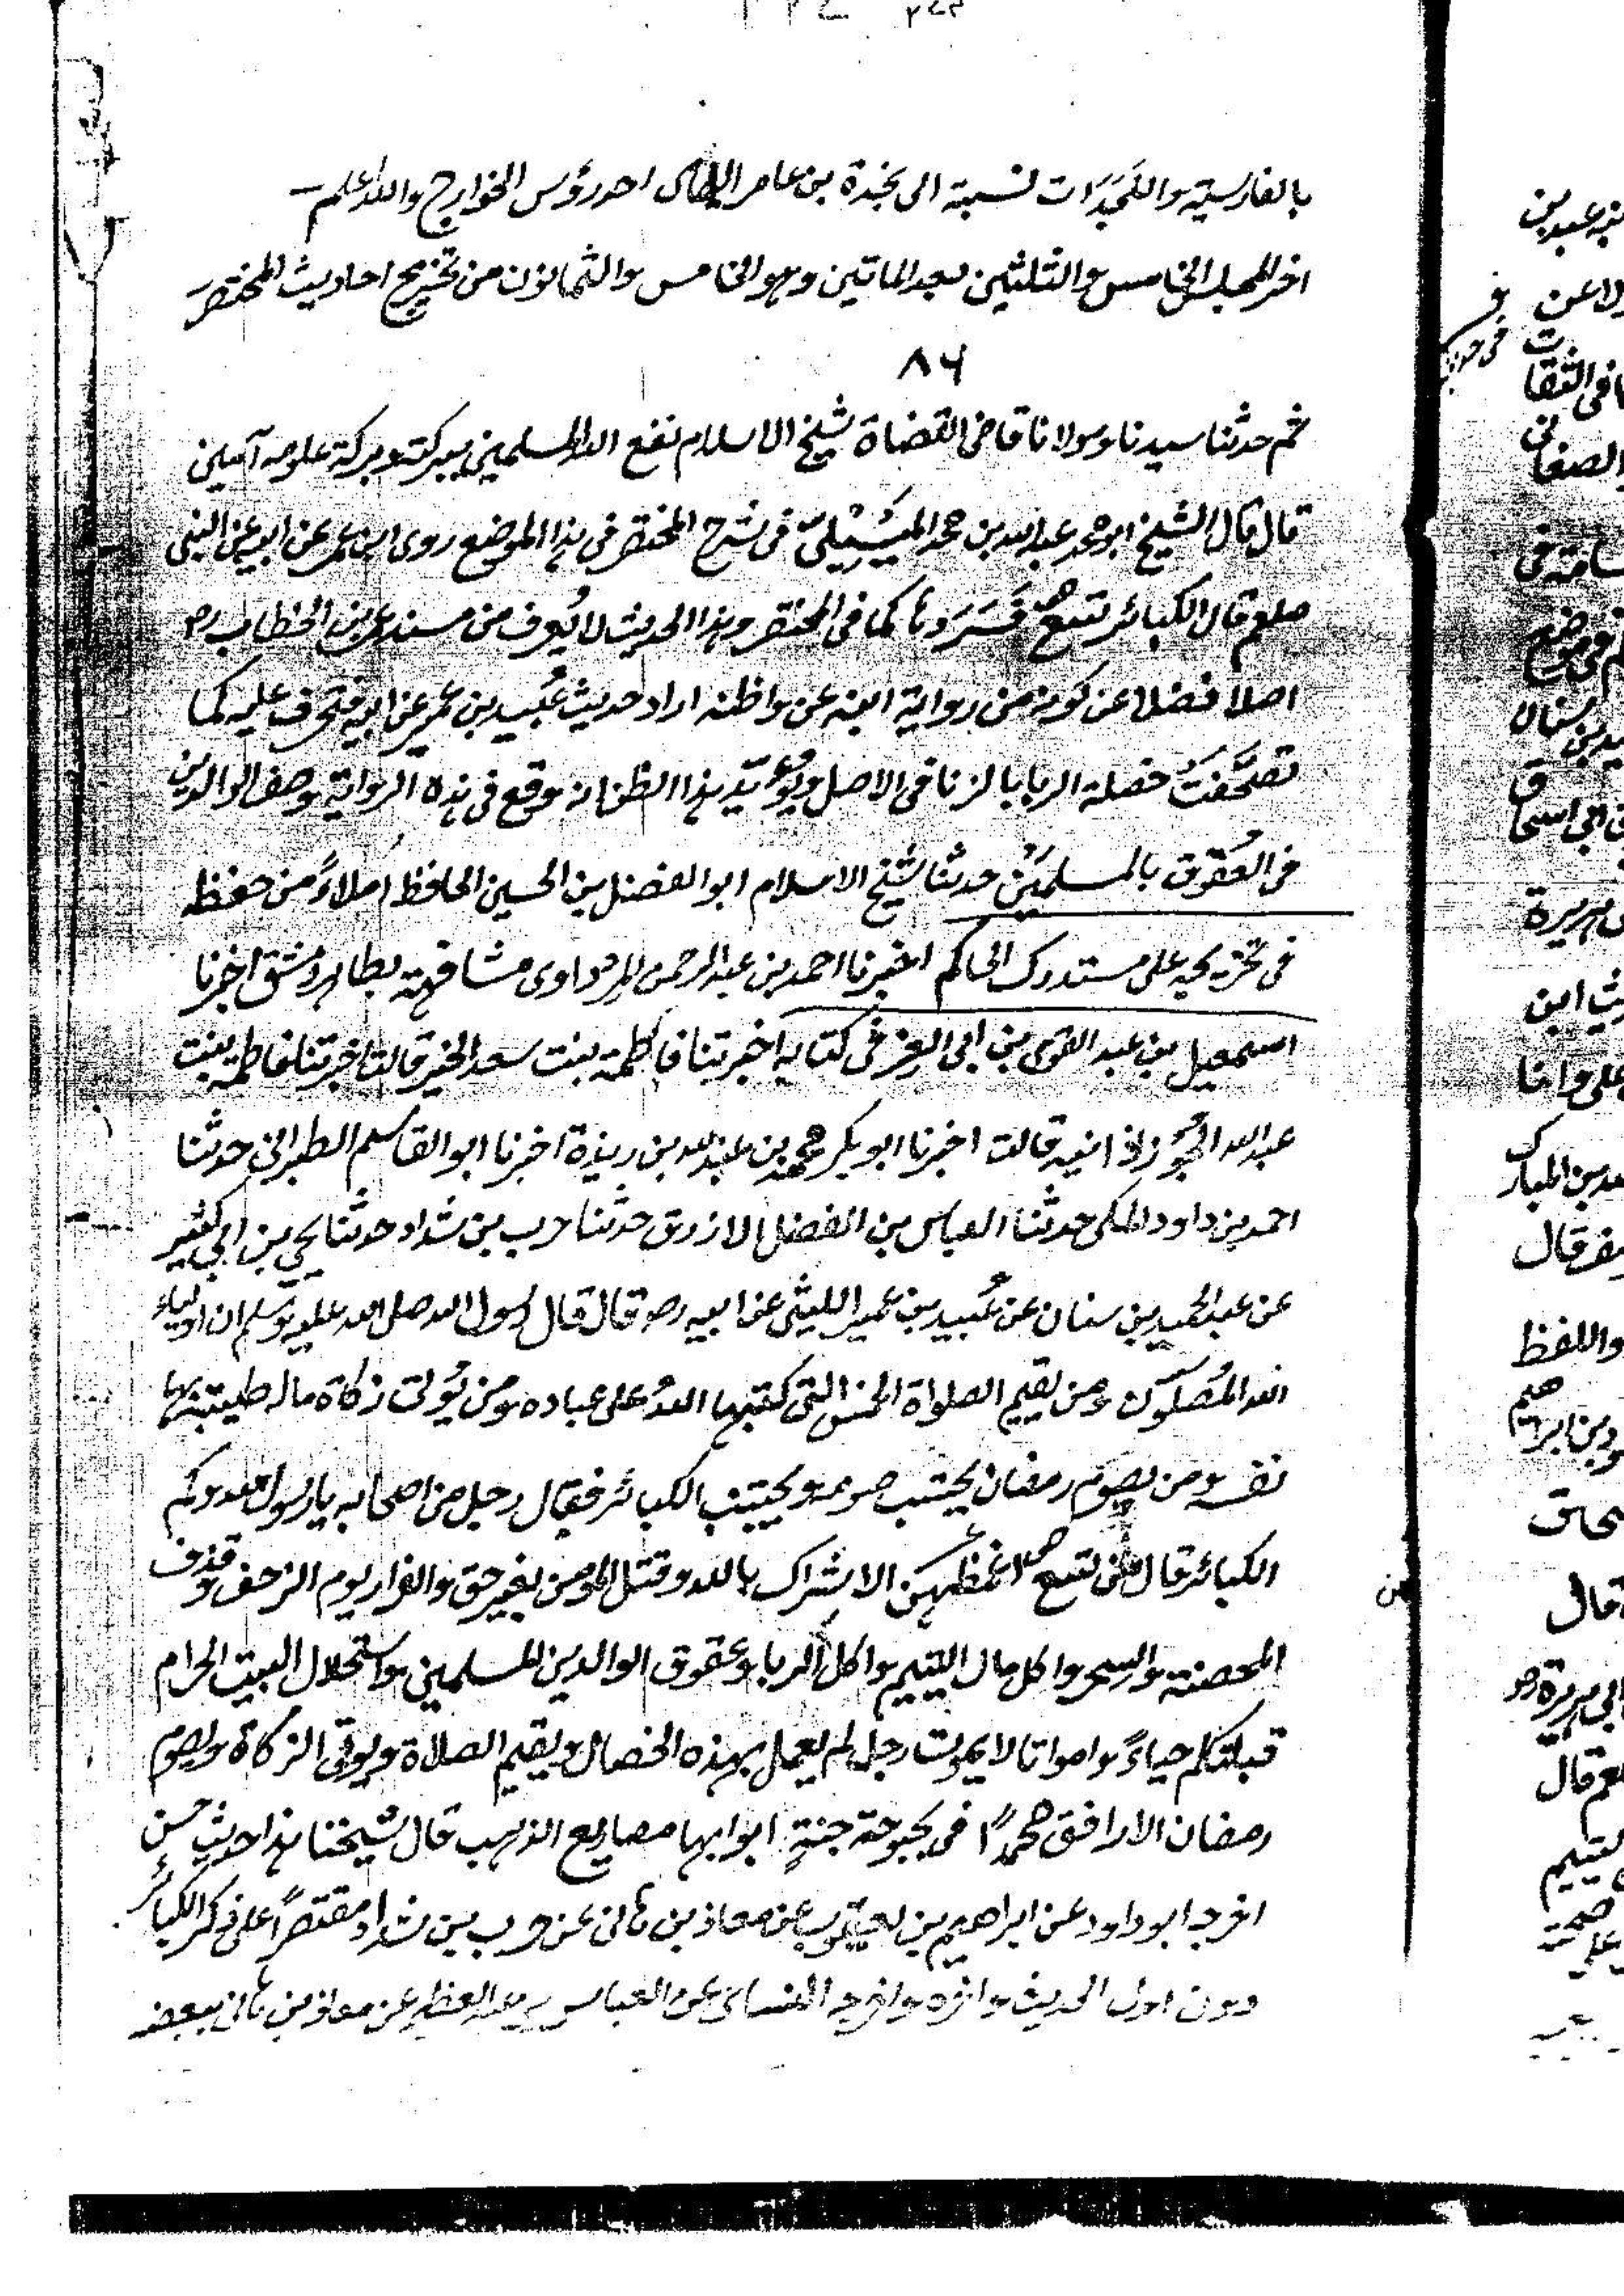 بالفارسية والنَجَدَات نسبة الى نجدة بن عامر احد رؤس الخوارج والله اعلم
اخر المجلس الخامس والثلثين بعد الماتين وهو الخامس والثمانون من تخريج احاديث المختصر
٨٦
ثم حدثنا سيدنا ومولانا قاضى القضاة شيخ الاسلام نفع الله المسلمين ببركته وبركة علومه آمين
قال قال الشيخ ابو محمد عبد الله بن محمد فى شرح المختصر فى هذا الموضع روى ابن عمر عن ابيه عن النبى
صلعم قال الكبائر تسع فَسَرَدها كما فى المختصر وهذا الحديث لا يُعرف من مسند عمر بن الخطاب رضـ
اصلا فضلا عن كونه من رواية ابنه عن واظنه اراد حديث عُبَيد بن عمير عن ابيه فتحرف عليه كما
تصحَّفتَ خصلة الربا بالزنا فى الاصل ويُؤيّد هذا الظن انه وقع فى هذه الرواية وصف الوالدين
فى العُقوق بالمسلمَيْن حدثنا شيخ الاسلام ابو الفضل بن الحسين الحافظ املاءً من حفظه
فى تخريجه على مستدرك الحاكم اخبرنا احمد بن عبد الرحمن المرداوى مشافهة بظاهر دمشق اخبرنا
اسمعيل بن عبد القوى بن ابى العز فى كتابه اخبرتنا فاطمة بنت سعد الخير قالت اخبرتنا فاطمة بنت
عبد الله الجُوزذانية قالت اخبرنا ابو بكر محمد بن عبد الله بن ريذة اخبرنا ابو القاسم الطبرانى حدثنا
احمد بن داود المكى حدثنا العباس بن الفضل الازرق حدثنا حرب بن شداد حدثنا يحيى بن ابى كثير
عن عبد الحميد بن سنان عن عُبيد بن عمير الليثى عن ابيه رضـ قال قال رسول الله صلى الله عليه وسلم ان اولياء
الله المُصلّون ومن يقيم الصلواة الخمس التى كتبها اللهُ على عباده ومن يُؤتى زكاة ماله طيبة بها
نفسه ومن يصوم رمضان يحتسب صومه ويجتنب الكبائر فقال رجل من اصحابه يا رسول الله وكم
الكبائر قال هى تسع اعظمهن الاشراك بالله وقتل المومن بغير حق والفرار يوم الزحف وقذف
المحصنة والسحر واكل مال اليتيم واكل الربا وعقوق الوالدين المسلمين واستحلال البيت الحرام
قبلتكم احياءً وامواتا لا يموت رجل لم يعمل بهذه الخصال ويقيم الصلاة ويوتى الزكاة ويصوم
رمضان الا رافق محمدًا فى بحبوحة جنةٍ ابوابها مصاريع الذهب قال شيخنا هذا حديث حسن
اخرجه ابو داود عن ابراهيم بن يعقوب عن معاذ بن هانى عن حرب بن شداد مقتصرًا على ذكر الكبائر
دون اول الحديث واخره واخرجه النسائى عن العباس بن عبد العظيم عن معاذ بن هانى ببعضه